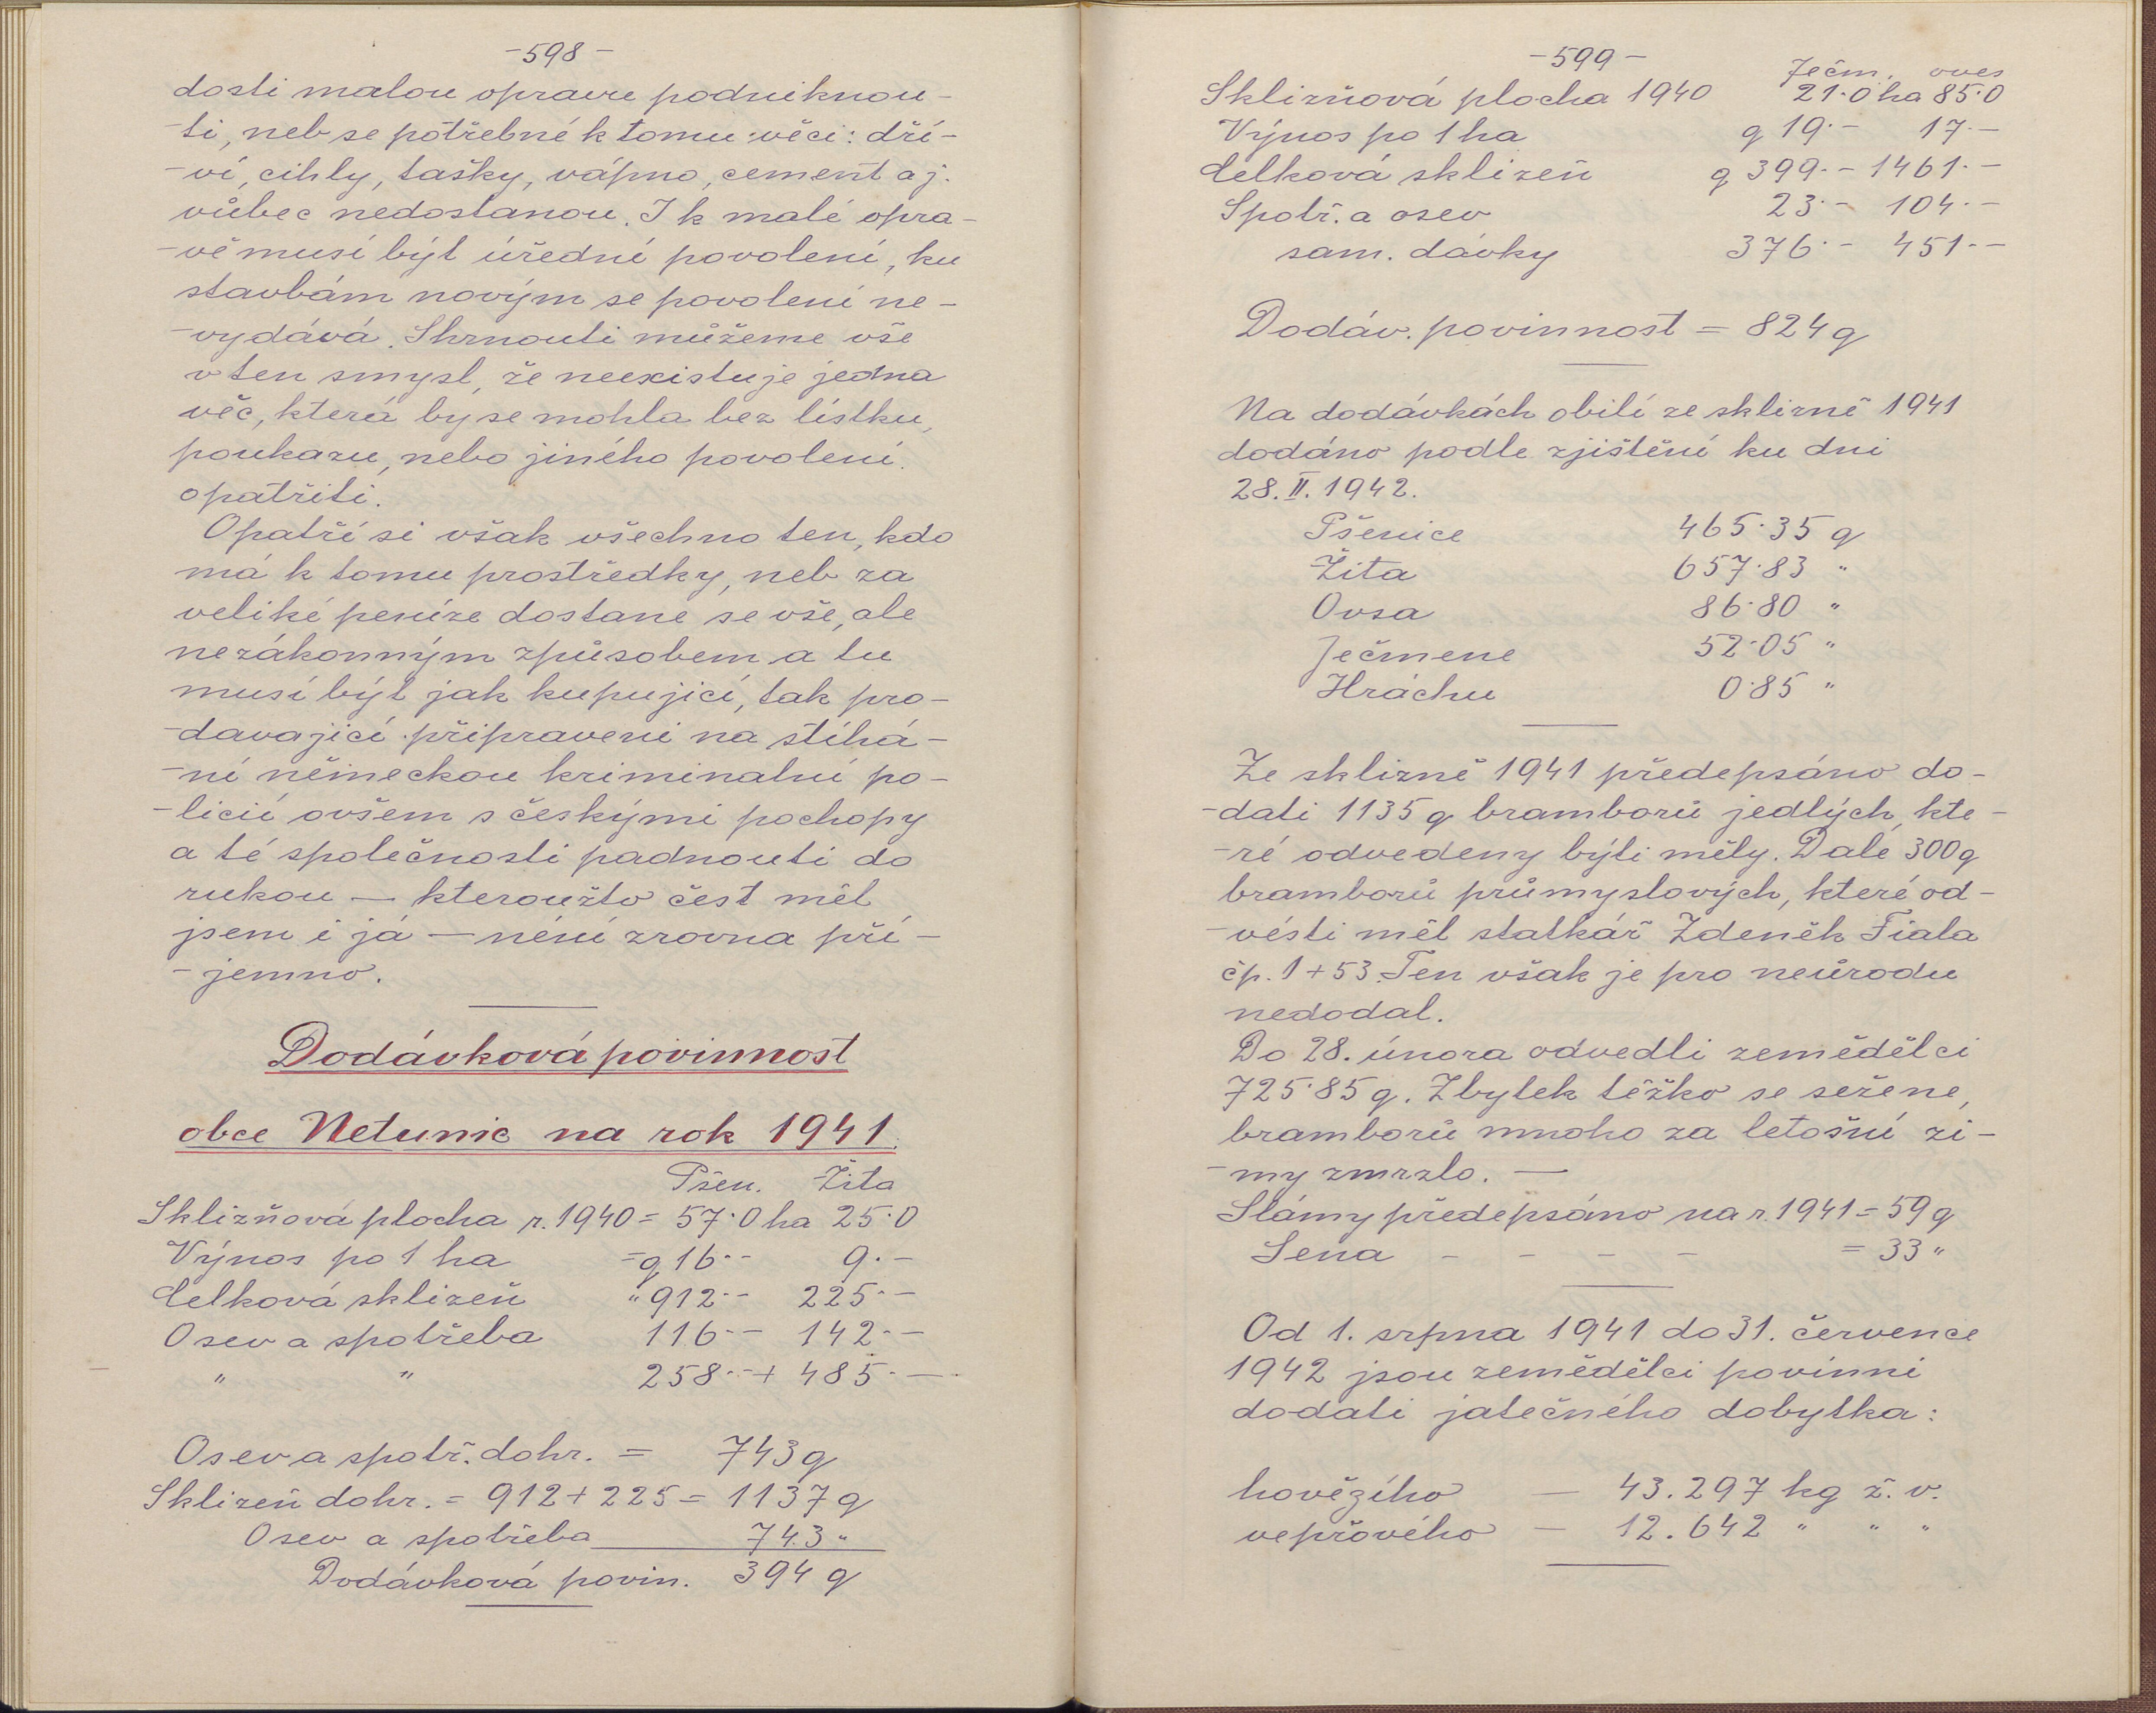 -598-
dosti malou opravu podniknou-
-ti, neb se potřebné k tomu věci: dří-
-ví, cihly, tašky, vápno, cement a j.
vůbec nedostanou. I k malé opra-
-vě musí být úřední povolení, ku
stavbám novým se povolení ne-
-vydává. Shrnouti můžeme vše
v ten smysl, že neexistuje jedna
věc, která by se mohla bez lístku,
poukazu, nebo jiného povolení
opatřiti.
Opatří si však všechno ten, kdo
má k tomu prostředky, neb za
veliké peníze dostane se vše, ale
nezákonným způsobem a tu
musí být jak kupující, tak pro-
-davající připraveni na stíhá-
-ní německou kriminalní po-
-licií ovšem s českými pochopy
a té společnosti padnouti do
rukou — kteroužto čest měl
jsem i já — není zrovna pří-
-jemno.
Dodávková povinnost
obce Netunic na rok 1941.
Pšen. Žita
Sklizňová plocha r. 1940 = 57·0 ha 25·0
Výnos po 1 ha =q 16·- 9·-
Celková sklizeň " 912·- 225·-
Osev a spotřeba 116·- 142·-
" " 258·- + 485·-
Osev a spotř. dohr. = 743 q
Sklizeň dohr. = 912 + 225 = 1137 q
Osev a spotřeba 743 "
Dodávková povin. 394 q
-599-
Ječm. oves
Sklizňová plocha 1940 21·0 ha 85·0
Výnos po 1 ha q 19·- 17·-
Celková sklizeň q 399·- 1461·-
Spotř. a osev 23·- 104·-
sam. dávky 376·- 451·-
Dodáv. povinnost = 824 q
Na dodávkách obilí ze sklizně 1941
dodáno podle zjištění ku dni
28. II. 1942.
Pšenice 465·35 q
Žita 657·83 "
Ovsa 86·80 "
Ječmene 52·05 "
Hráchu 0·85 "
Ze sklizně 1941 předepsáno do-
-dati 1135 q bramborů jedlých, kte-
-ré odvedeny býti měly. Dalé 300 q
bramborů průmyslových, které od-
-vésti měl statkář Zdeněk Fiala
čp. 1 + 53. Ten však je pro neúrodu
nedodal.
Do 28. února odvedli zemědělci
725·85 q. Zbytek těžko se sežene,
bramborů mnoho za letošní zi-
-my zmrzlo. —
Slámy předepsáno na r. 1941 = 59 q
Sena - - - - = 33 "
Od 1. srpna 1941 do 31. července
1942 jsou zemědělci povinni
dodati jatečného dobytka:
hovězího — 43.297 kg ž. v.
vepřového — 12.642 " " "